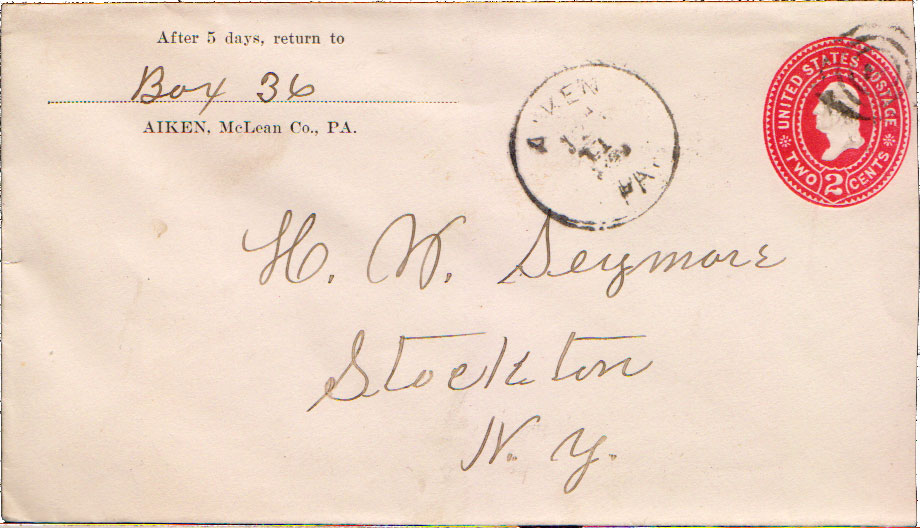 After 5 days, return to
Box 36
AIKEN, McLean Co., PA.
AIKEN
PA.
UNITED STATES POSTAGE
TWO 2 CENTS
H. W. Seymore
Stockton
N. Y.